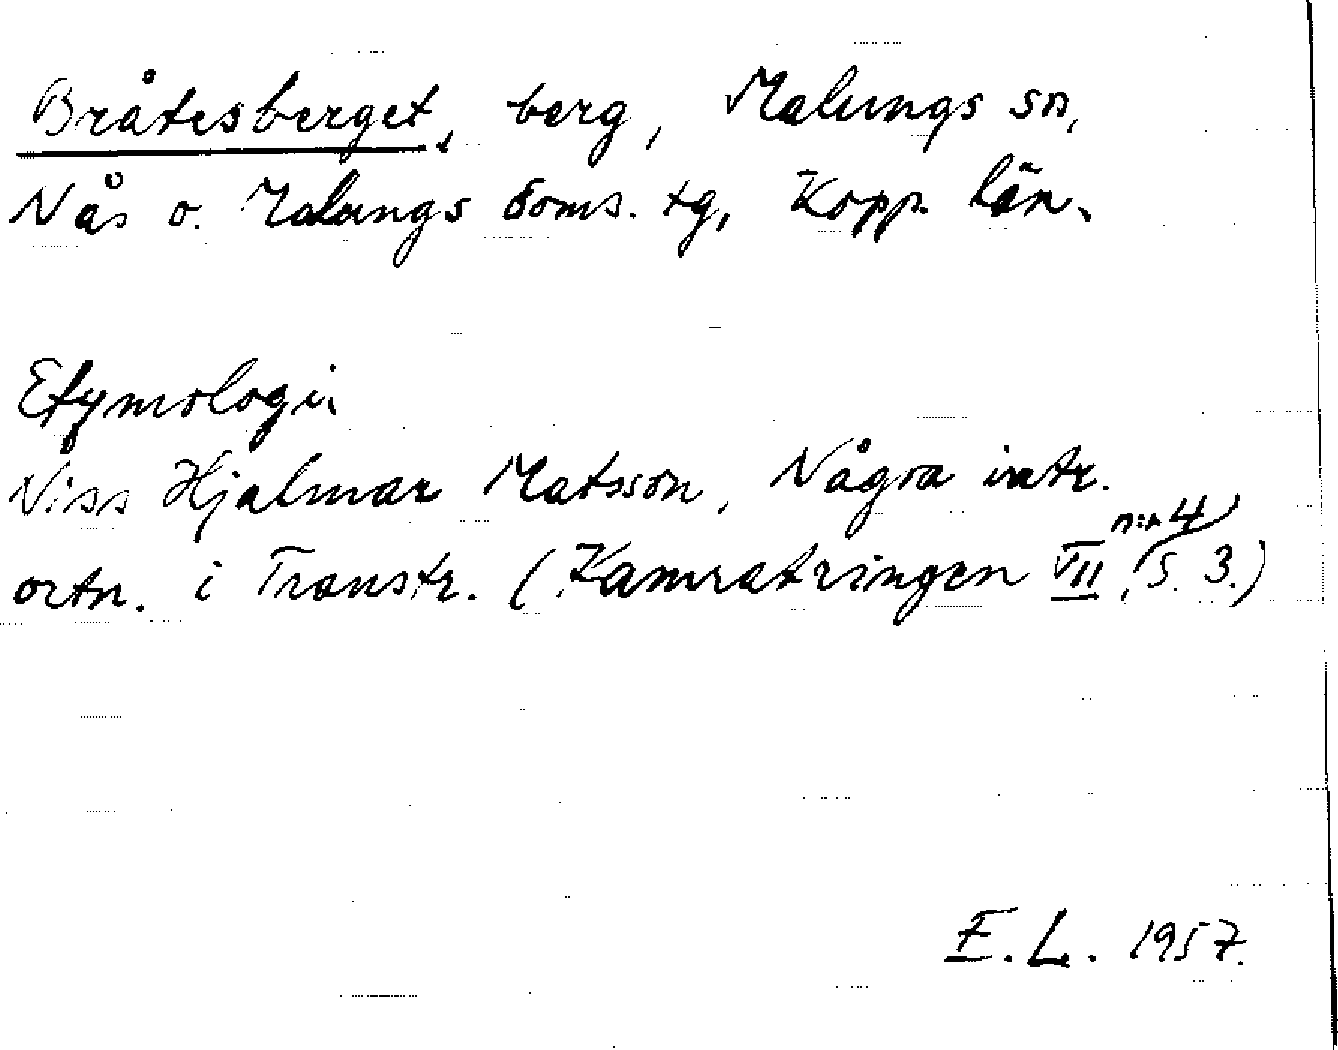 Bråtesberget, berg, Malungs sn,
Nås o. Malungs doms. tg, Kopp. län.
Etymologi:
Niss Hjalmar Matsson, Några intr.
ortn. i Transtr. (Kamratringen VII, n:r 4, s. 3.)
E. L. 1957.